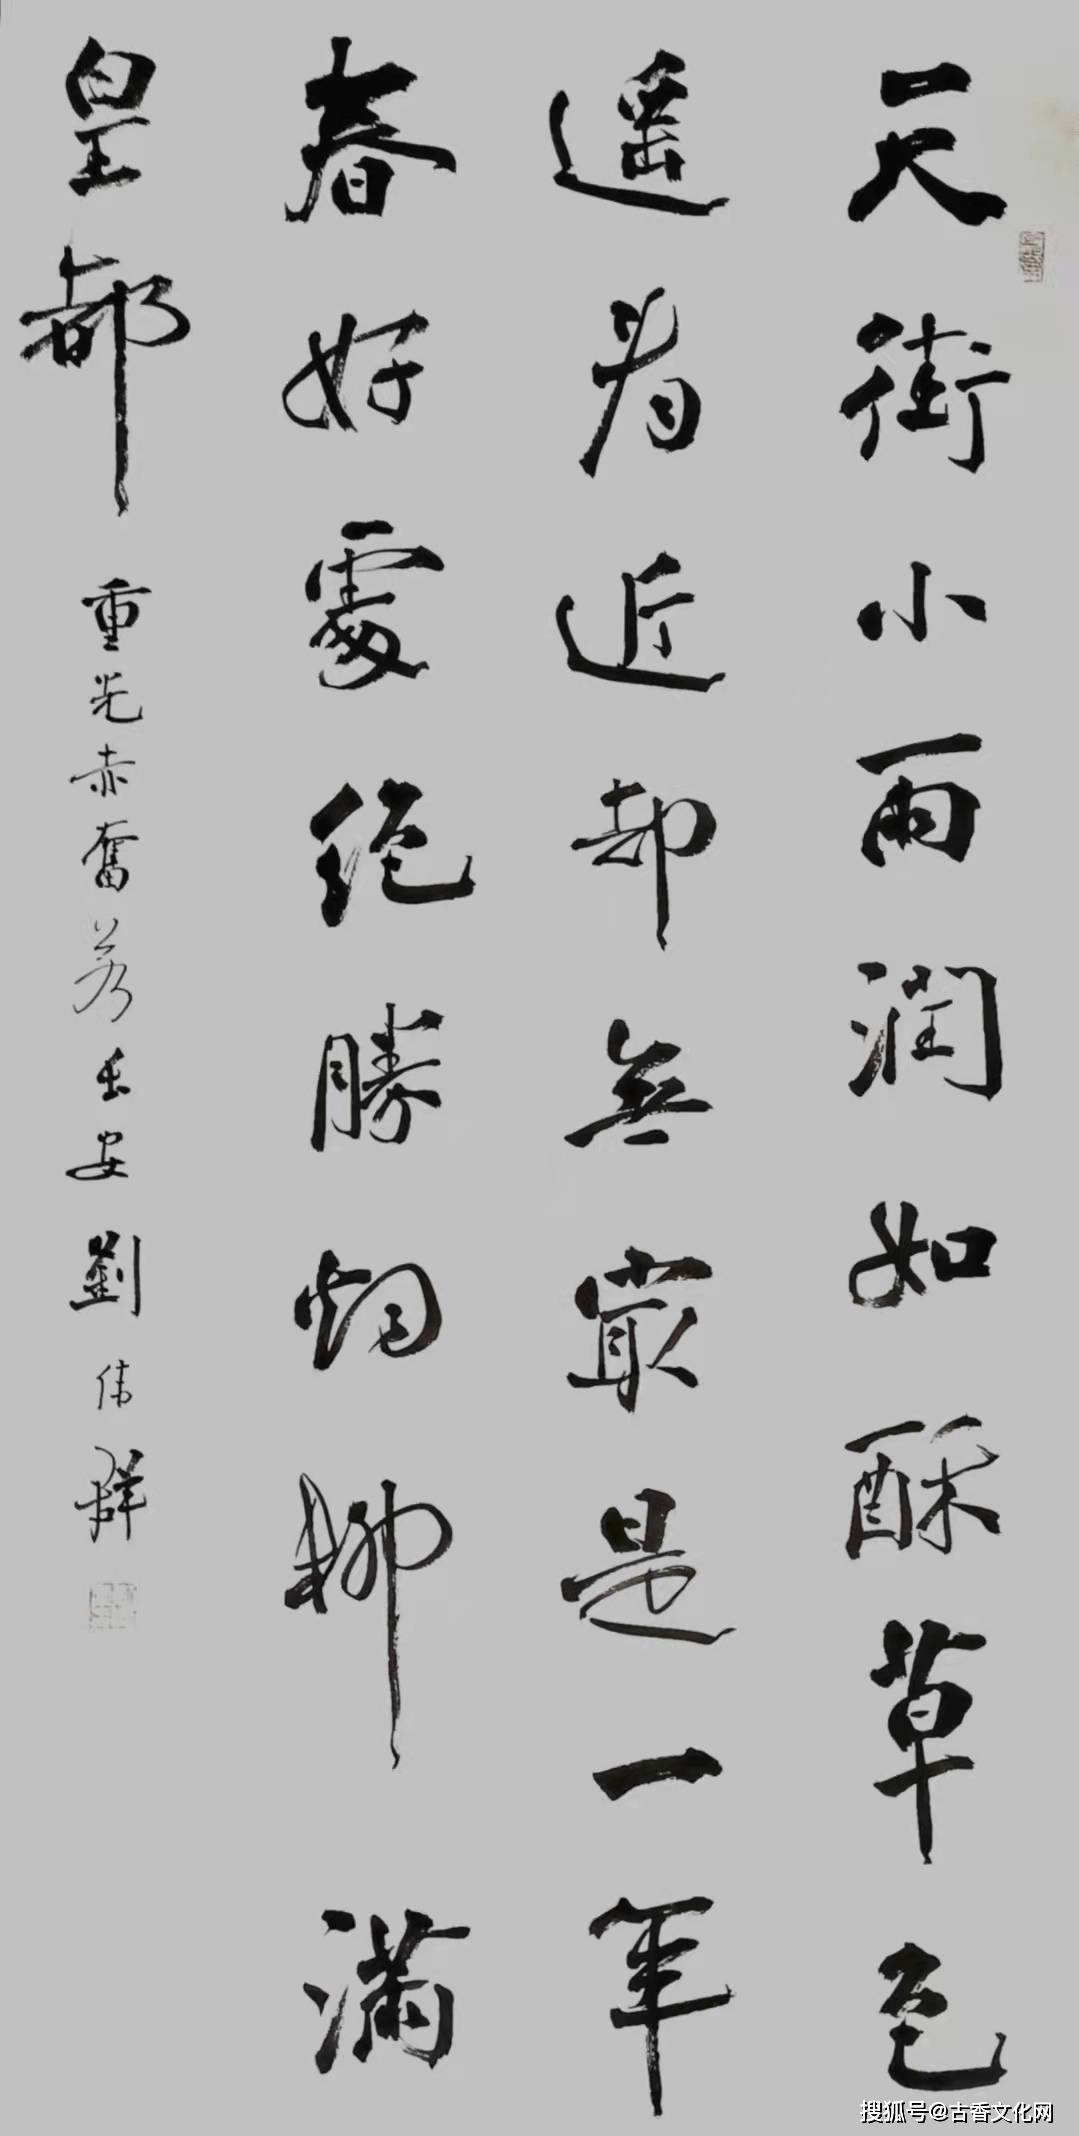 天街小雨润如酥草色
遥看近却無最是一年
春好處绝勝烟柳满
皇都
重光赤奮若长安劉伟群
搜狐号@古香文化网